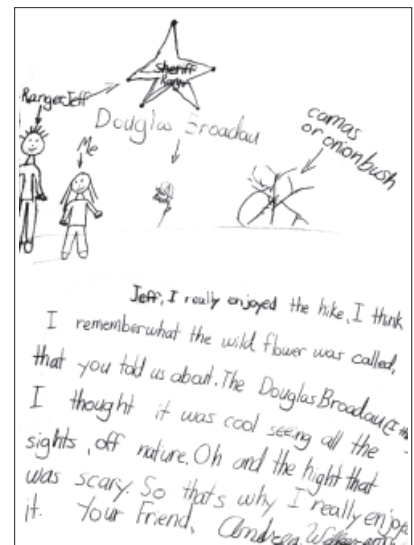 Sheriff
Ranger
Ranger Jeff
Douglas Broadau
camas
or onion bush
Me
Jeff, I really enjoyed the hike, I think
I remember what the wild flower was called,
that you told us about. The Douglas Broadau (I
I thought it was cool seeing all the
sights, off nature. Oh and the hight that
was scary. So that's why I really enjoye
it. Your Friend, Andrea